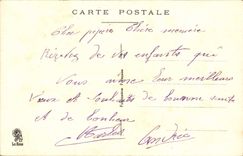 CARTE POSTALE
Cher pépère Chère mémère
Recevez de vos enfants qui
vous aime leur meilleurs
vœux et souhaits de bonne santé
et de bonheur
Andrée